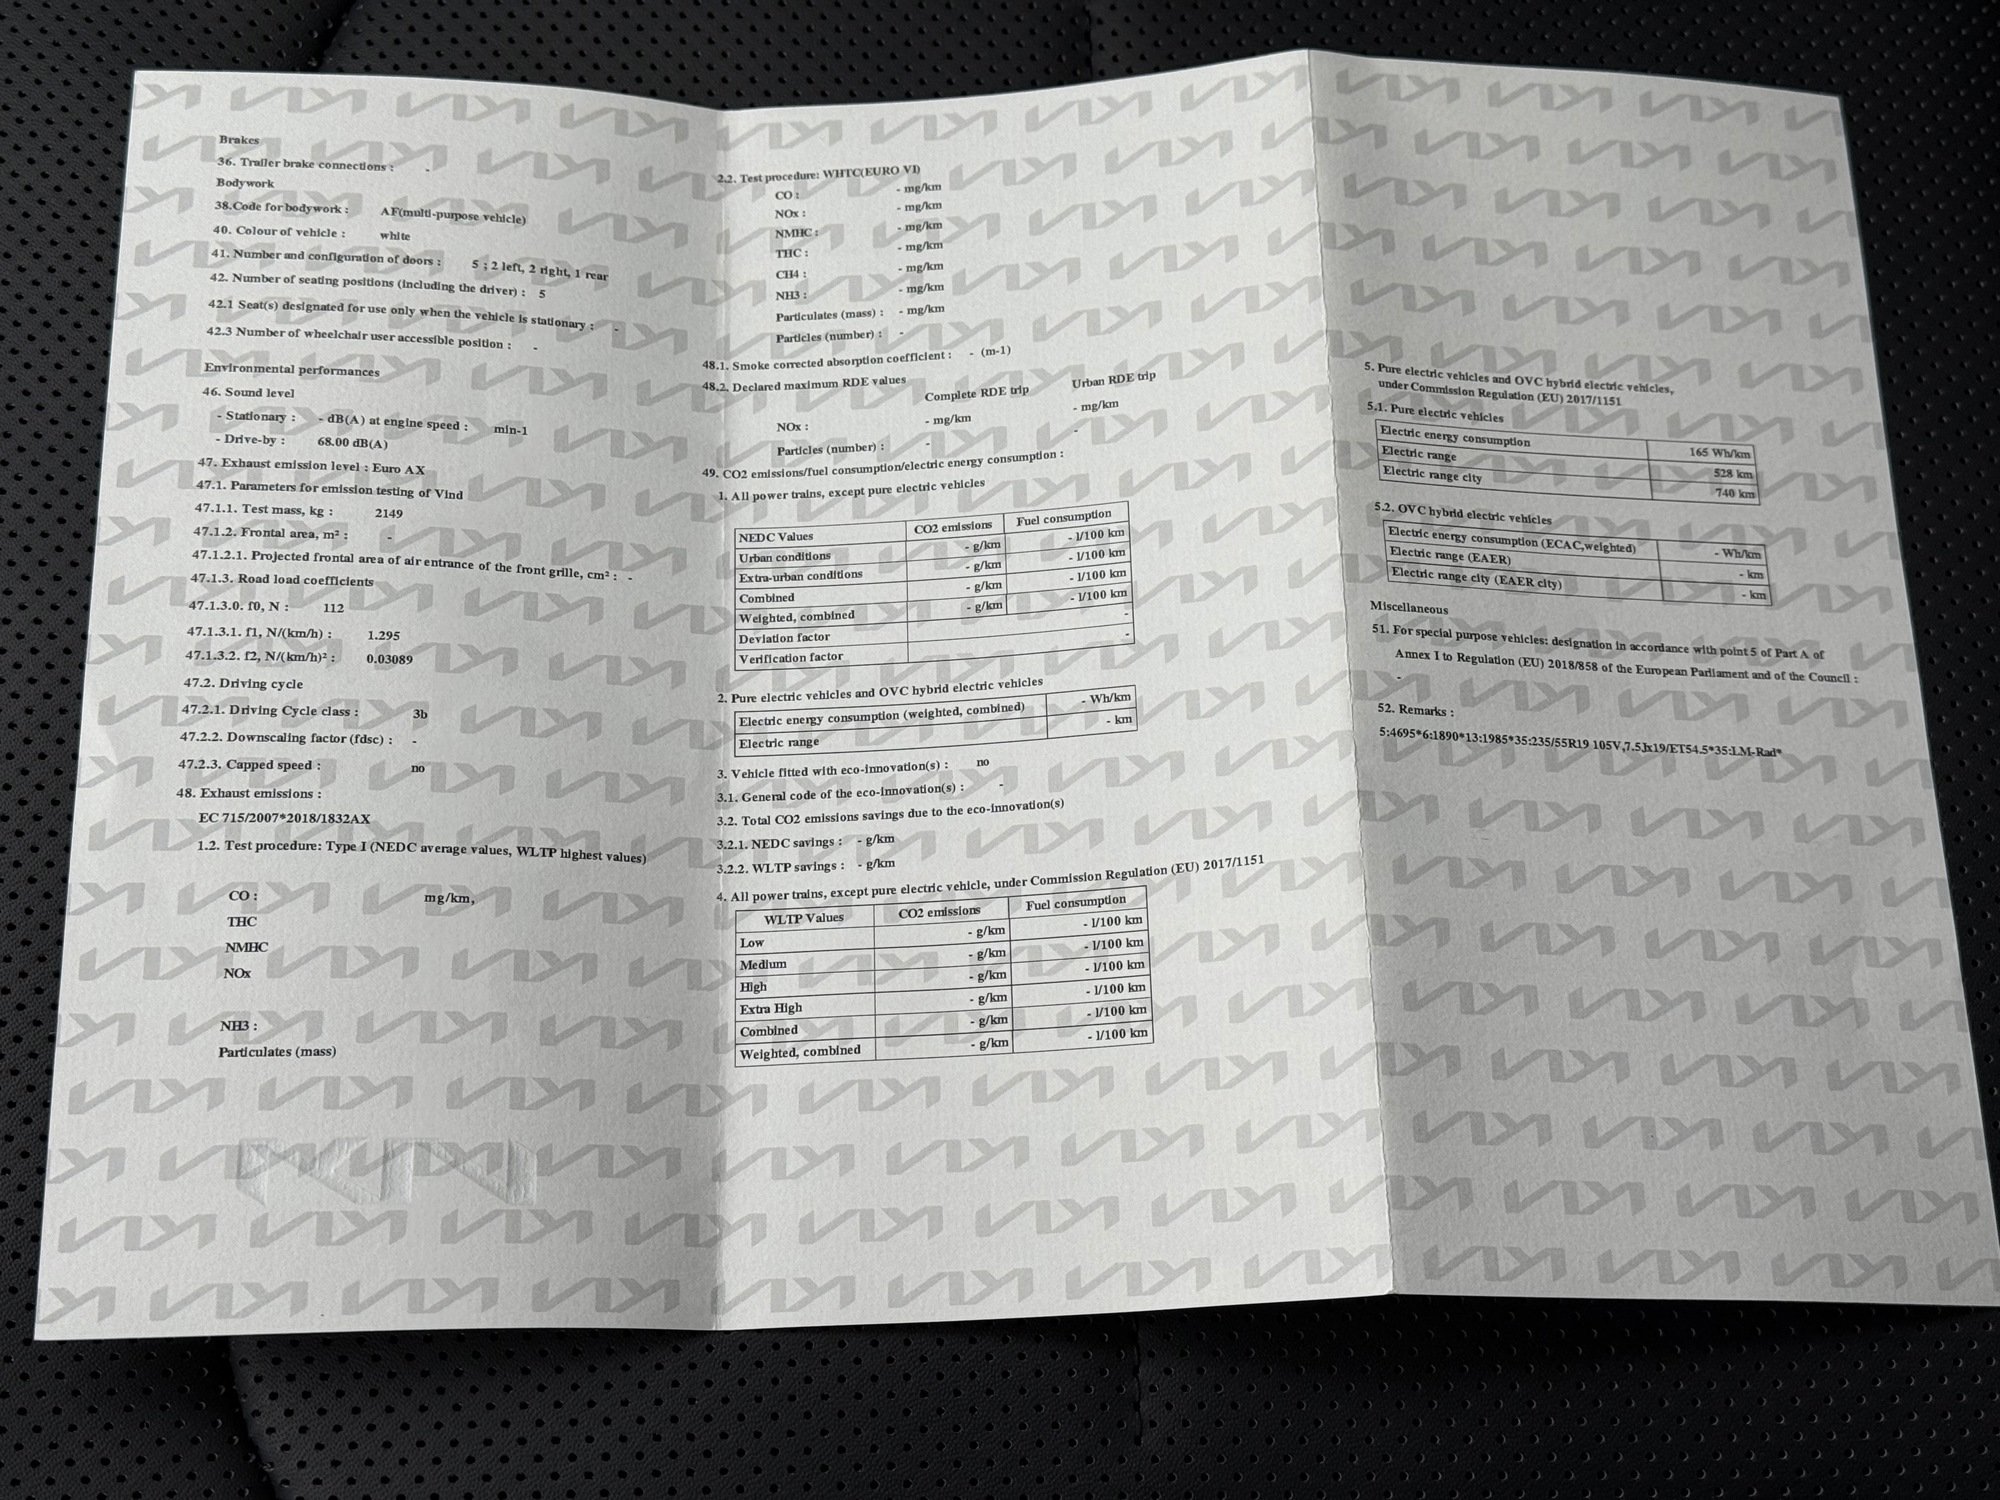 Brakes
36. Trailer brake connections : -
Bodywork
38.Code for bodywork : AF(multi-purpose vehicle)
40. Colour of vehicle : white
41. Number and configuration of doors : 5 ; 2 left, 2 right, 1 rear
42. Number of seating positions (including the driver) : 5
42.1 Seat(s) designated for use only when the vehicle is stationary : -
42.3 Number of wheelchair user accessible position : -
Environmental performances
46. Sound level
- Stationary : - dB(A) at engine speed : min-1
- Drive-by : 68.00 dB(A)
47. Exhaust emission level : Euro AX
47.1. Parameters for emission testing of Vind
47.1.1. Test mass, kg : 2149
47.1.2. Frontal area, m² : -
47.1.2.1. Projected frontal area of air entrance of the front grille, cm² : -
47.1.3. Road load coefficients
47.1.3.0. f0, N : 112
47.1.3.1. f1, N/(km/h) : 1.295
47.1.3.2. f2, N/(km/h)² : 0.03089
47.2. Driving cycle
47.2.1. Driving Cycle class : 3b
47.2.2. Downscaling factor (fdsc) : -
47.2.3. Capped speed : no
48. Exhaust emissions :
EC 715/2007*2018/1832AX
1.2. Test procedure: Type I (NEDC average values, WLTP highest values)
CO : mg/km,
THC
NMHC
NOx
NH3 :
Particulates (mass)
2.2. Test procedure: WHTC(EURO VI)
CO : - mg/km
NOx : - mg/km
NMHC : - mg/km
THC : - mg/km
CH4 : - mg/km
NH3 : - mg/km
Particulates (mass) : - mg/km
Particles (number) : -
48.1. Smoke corrected absorption coefficient : - (m-1)
48.2. Declared maximum RDE values
Complete RDE trip Urban RDE trip
NOx : - mg/km - mg/km
Particles (number) : - -
49. CO2 emissions/fuel consumption/electric energy consumption :
1. All power trains, except pure electric vehicles
NEDC Values CO2 emissions Fuel consumption
Urban conditions - g/km - l/100 km
Extra-urban conditions - g/km - l/100 km
Combined - g/km - l/100 km
Weighted, combined - g/km - l/100 km
Deviation factor -
Verification factor -
2. Pure electric vehicles and OVC hybrid electric vehicles
Electric energy consumption (weighted, combined) - Wh/km
Electric range - km
3. Vehicle fitted with eco-innovation(s) : no
3.1. General code of the eco-innovation(s) : -
3.2. Total CO2 emissions savings due to the eco-innovation(s)
3.2.1. NEDC savings : - g/km
3.2.2. WLTP savings : - g/km
4. All power trains, except pure electric vehicle, under Commission Regulation (EU) 2017/1151
WLTP Values CO2 emissions Fuel consumption
Low - g/km - l/100 km
Medium - g/km - l/100 km
High - g/km - l/100 km
Extra High - g/km - l/100 km
Combined - g/km - l/100 km
Weighted, combined - g/km - l/100 km
5. Pure electric vehicles and OVC hybrid electric vehicles,
under Commission Regulation (EU) 2017/1151
5.1. Pure electric vehicles
Electric energy consumption 165 Wh/km
Electric range 528 km
Electric range city 740 km
5.2. OVC hybrid electric vehicles
Electric energy consumption (ECAC,weighted) - Wh/km
Electric range (EAER) - km
Electric range city (EAER city) - km
Miscellaneous
51. For special purpose vehicles: designation in accordance with point 5 of Part A of
Annex I to Regulation (EU) 2018/858 of the European Parliament and of the Council :
-
52. Remarks :
5:4695*6:1890*13:1985*35:235/55R19 105V,7.5Jx19/ET54.5*35:LM-Rad*